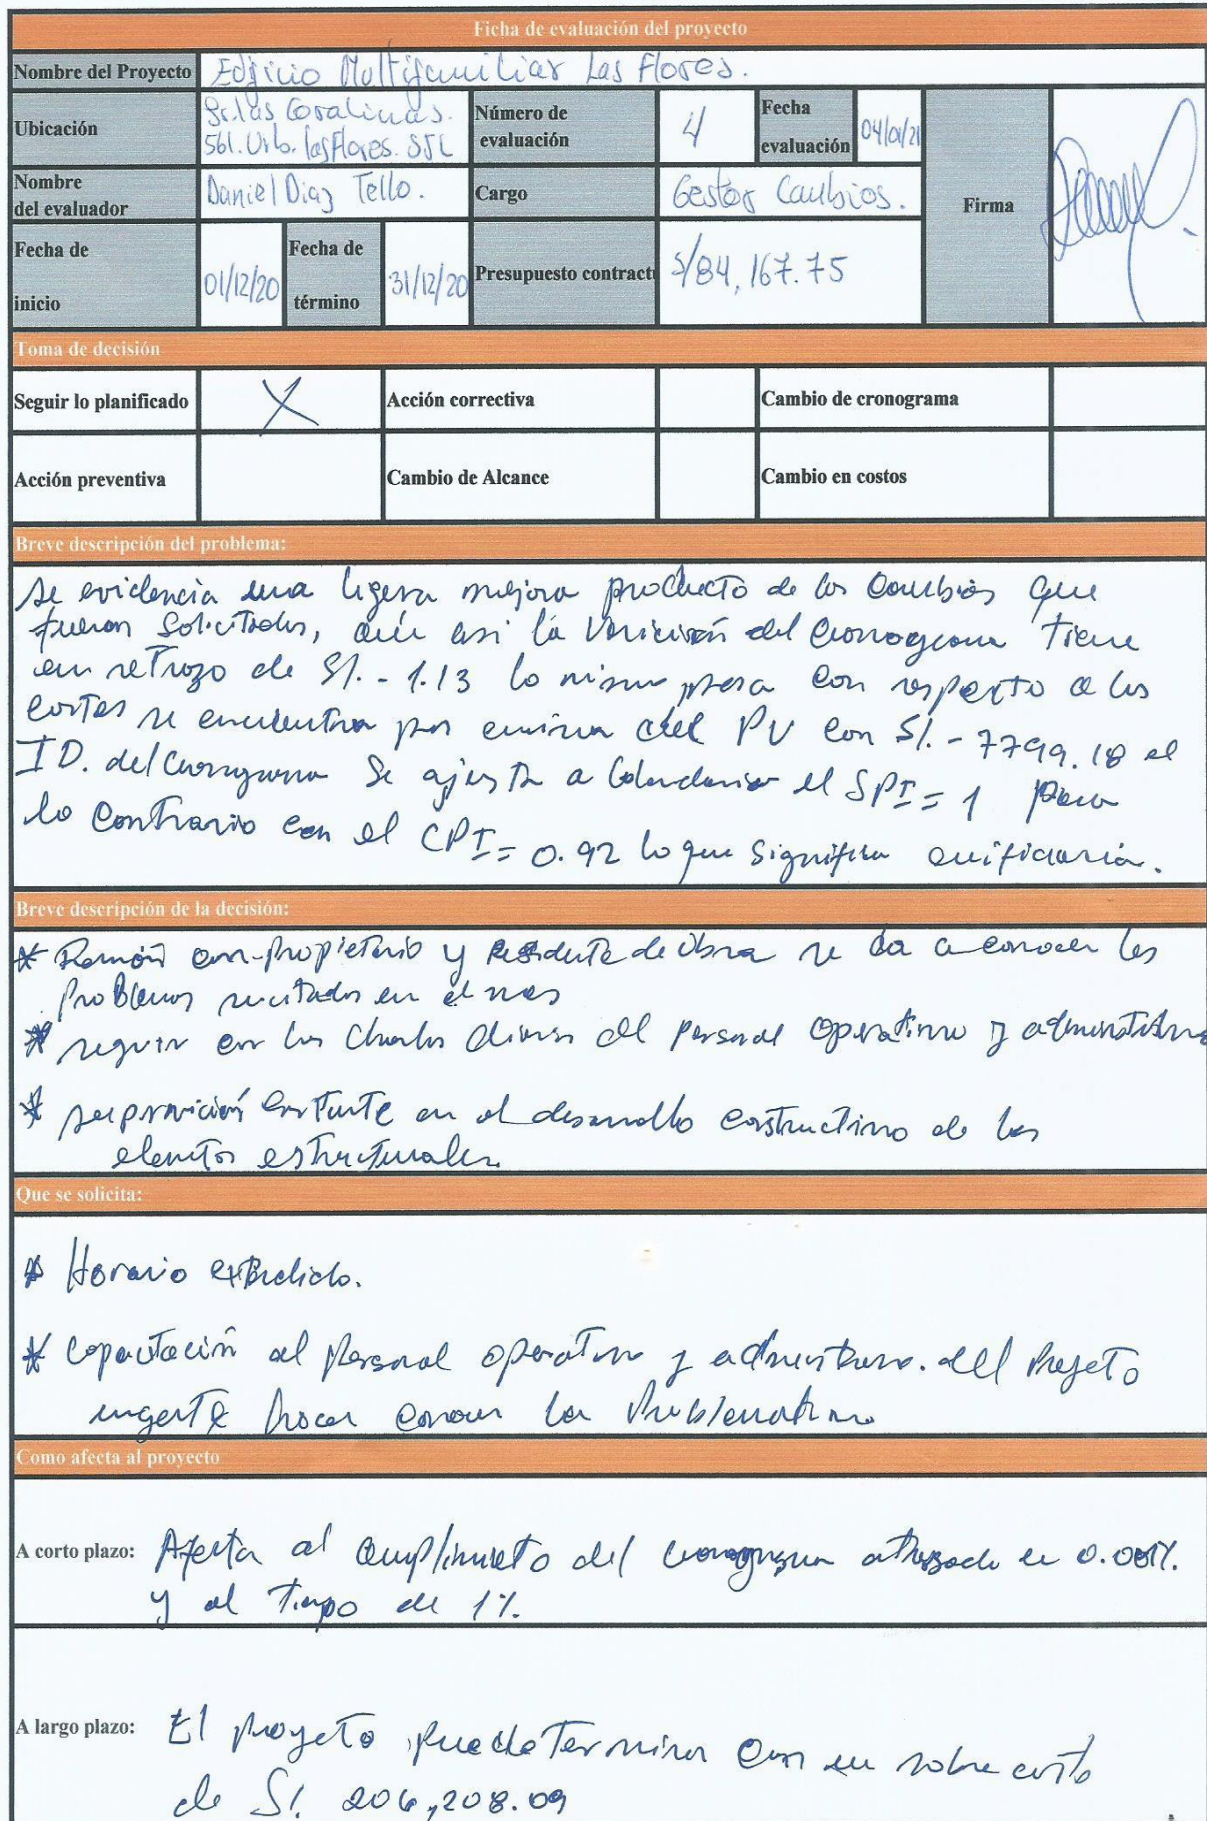 Ficha de evaluación del proyecto
Nombre del Proyecto Edificio Multifamiliar Las Flores.
Ubicación Jr. las Coralinas. 561. Urb. las Flores. SJL
Número de evaluación 4
Fecha evaluación 04/01/21
Nombre del evaluador Daniel Diaz Tello.
Cargo Gestor Cambios.
Firma
Fecha de inicio 01/12/20
Fecha de término 31/12/20
Presupuesto contractu S/84,167.75
Toma de decisión
Seguir lo planificado X Acción correctiva Cambio de cronograma
Acción preventiva Cambio de Alcance Cambio en costos
Breve descripción del problema:
Se evidencia una ligera mejora producto de los Cambios que
fueron Solicitados, aún asi la Variación del Cronograma tiene
un retrazo de S/. - 1.13 lo mismo pasa con respecto a los
costos se encuentra por encima del PV con S/. - 7799.18 el
ID. del Cronograma Se ajusta a Calendario el SPI = 1 pero
lo Contrario con el CPI = 0.92 lo que Significa
Breve descripción de la decisión:
* con propietario y Residente de Obra se da a conocer los
Problemas en el mes
* seguir con las Charlas al Personal Operativo y
* en el desarrollo constructivo de los
elementos estructurales
Que se solicita:
* Horario extendido.
* Capacitación al Personal operativo y del Proyeto
hacer conocer la
Como afecta al proyecto
A corto plazo: Afecta al Cumplimieto del cronograma en 0.001%
y al Tiempo de 1%.
A largo plazo: El proyeto puede Terminar Con un sobre costo
de S/. 206,208.09